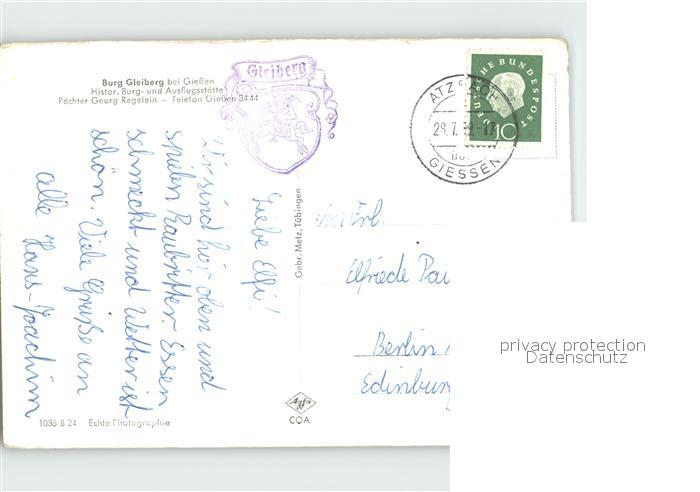 Burg Gleiberg bei Gießen
Histor. Burg- und Ausflugsstätte
Pächter Georg Regelein – Telefon Gießen 3444
Gleiberg
DEUTSCHE BUNDESPOST
10
28.7.
GIESSEN
Liebe Elfi!
Wir sind hier oben und
spielen Raubritter. Essen
schmeckt und Wetter ist
schön. Viele Grüße an
alle Hans-Joachim
Gebr. Metz, Tübingen
Elfriede
Berlin
Edinbur
1036 B 24 Echte Photographie
Agfa
COA
privacy protection
Datenschutz